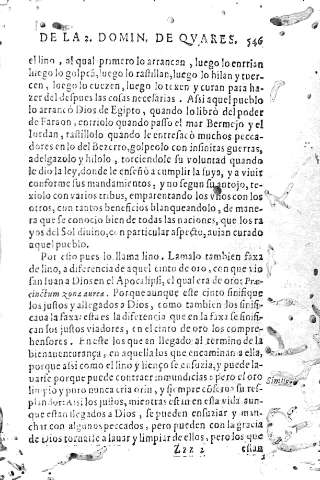 DE LA 2. DOMIN. DE QVARES. 546
el lino, al qual primero lo arrancan, luego lo entrian
luego lo golpeã, luego lo rastillan, luego lo hilan y tuer-
cen, luego lo cuezen, luego lo texen y curan para ha-
zer del despues las cosas necesarias. Assi aquel pueblo
lo arrancò Dios de Egipto, quando lo librò del poder
de Faraon, entriolo quando passo el mar Bermejo y el
Iordan, rastillolo quando le entresacò muchos pecca-
dores en lo del Bezerro, golpeolo con infinitas guerras,
adelgazolo y hilolo, torciendole su voluntad quando
le dio la ley, donde le enseñò a cumplir la suya, y a viuir
conforme sus mandamientos, y no segun su antojo, te-
xiolo con varios tribus, emparentando los vnos con los
otros, con tantos beneficios blanqueandolo, de mane-
ra que se conocio bien de todas las naciones, que los ra
yos del Sol diuino, en particular aspecto, auian curado
aquel pueblo.
Por esto pues lo llama lino. Lamalo tambien faxa
de lino, a diferencia de aquel cinto de oro, con que vio
san Iuan a Dios en el Apocalipsi, el qual era de oro: Præ-
cinctum zona aurea. Porque aunque este cinto sinifique
los justos y allegados a Dios, como tambien los sinifi-
caua la faxa: esta es la diferencia que en la faxa se sinifi-
can los justos viadores, en el cinto de oro los compre-
hensores. En este los que an llegado al termino de la
bienauenturança, en aquella los que encaminan a ella,
porque assi como el lino y lienço se ensuzia, y puede la-
uarse porque puede contraer inmundicias: pero el oro
limpio y puro nunca cria orin, y siempre cõserua su res-
plandor: Assi los justos, mientras estan en esta vida aun-
que estan llegados a Dios, se pueden ensuziar y man-
char con algunos peccados, pero pueden con la gracia
de Dios tornarse a lauar y limpiar de ellos, pero los que
Simile.
Zzz 2 estan